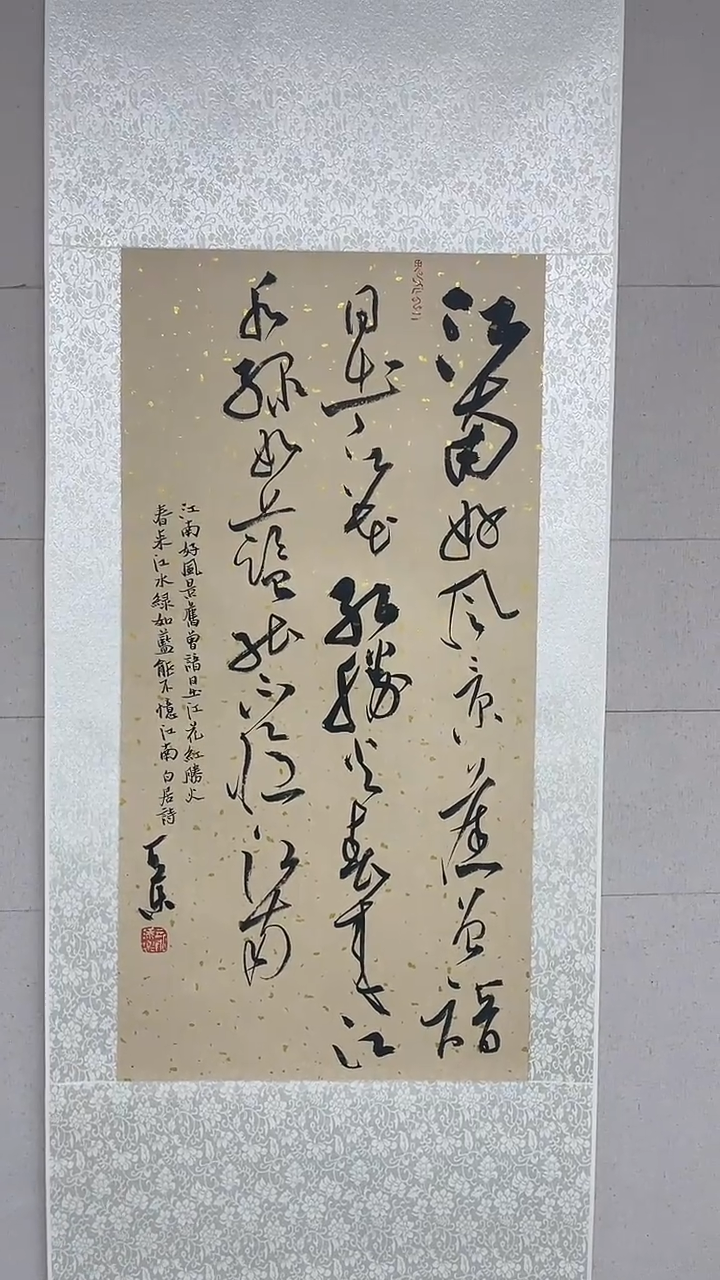 江南好风景旧曾谙
日出江花红胜火春来江
水绿如蓝能不忆江南
江南好風景舊曾諳日出江花紅勝火
春來江水綠如藍能不憶江南白居詩